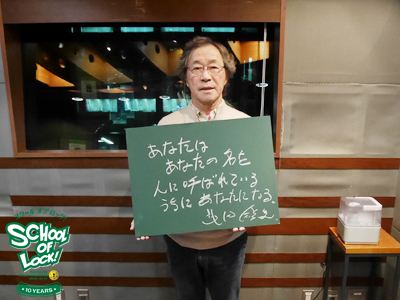 あなたは
あなたの名を
人に呼ばれている
うちにあなたになる。
SCHOOL
OF
LOCK!
10 YEARS